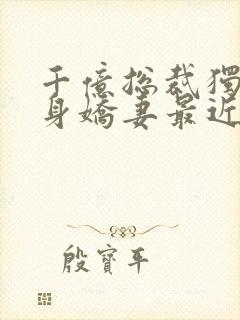 千億總裁獨
身嬌妻最近
殷寶平